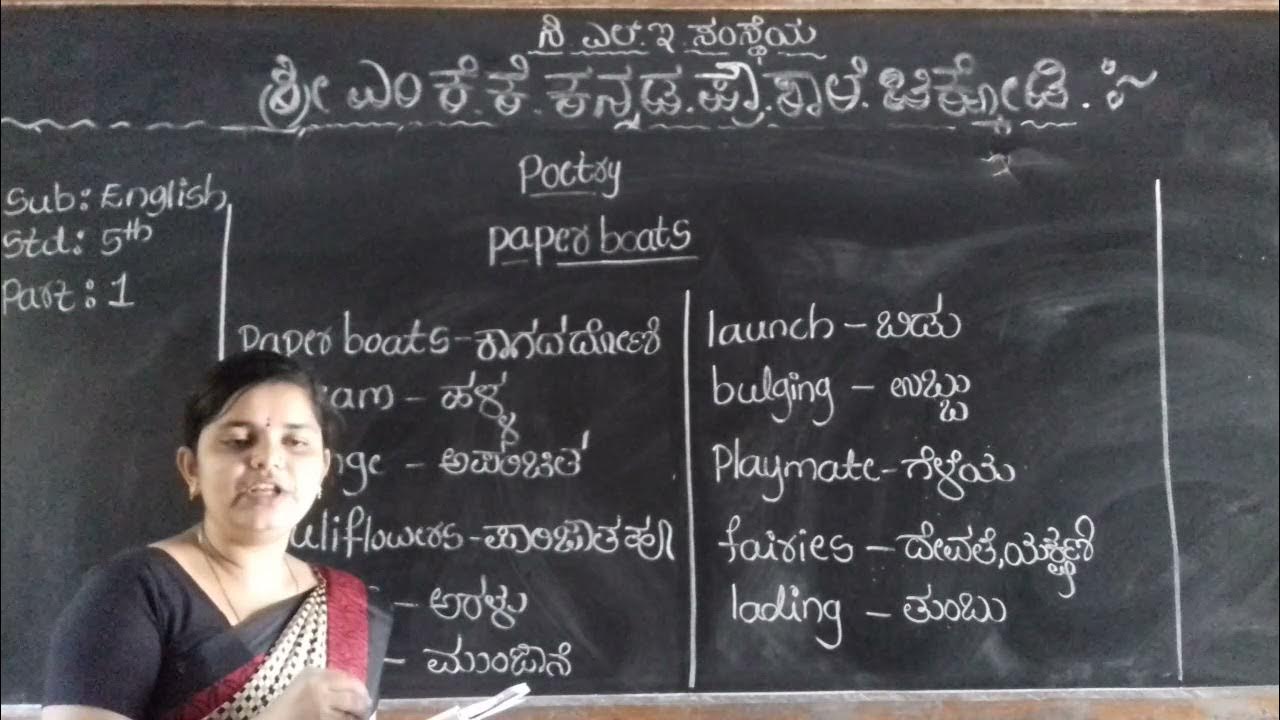 ಸಿ ಎಲ್ ಇ ಸಂಸ್ಥೆಯ
ಶ್ರೀ ಎಂ ಕೆ.ಕೆ. ಕನ್ನಡ.ಪ್ರೌ.ಶಾಲೆ.ಚಿಕ್ಕೋಡಿ.
Sub: English
Std: 5th
Part: 1
Poetry
paper boats
paper boats - ಕಾಗದದೋಣಿ
eam - ಹಳ್ಳ
nge - ಅಪರಿಚಿತ
uliflowers - ಪಾರಿಜಾತ ಹೂ
- ಅರಳು
- ಮುಂಜಾನೆ
launch - ಬಿಡು
bulging - ಉಬ್ಬು
Playmate - ಗೆಳೆಯ
fairies - ದೇವತೆ,ಯಕ್ಷಿಣಿ
lading - ತುಂಬು